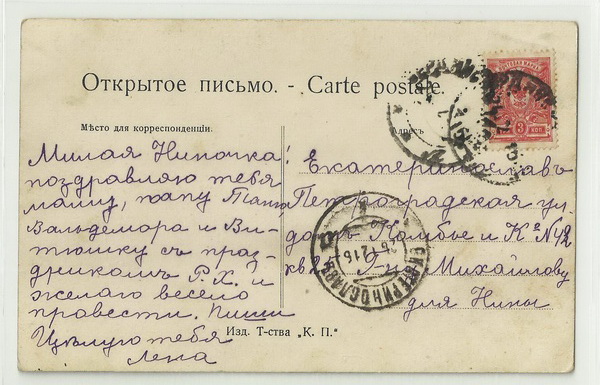 Открытое письмо. - Carte postale.
Мѣсто для корреспонденціи.
Адресъ
Милая Ниночка!
поздравляю тебя
маму, папу Таню,
Вальдемара и Ви-
тюшку съ праз-
дникомъ Р. Х. и
желаю весело
провести. Пиши
Цѣлую тебя
Лена
Екатеринославъ
Петроградская ул.
домъ Комбье и Кº № 42
кв. Михайлову
для Нины
ЕКАТЕРИНОСЛАВЪ
12 16
3 КОП
Изд. Т-ства „К. П.“